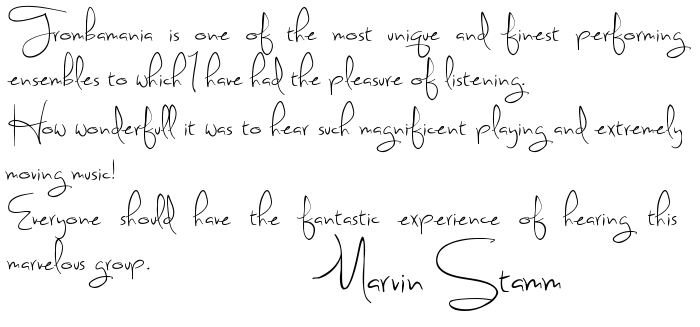 Trombamania is one of the most unique and finest performing
ensembles to which I have had the pleasure of listening.
How wonderfull it was to hear such magnificent playing and extremely
moving music!
Everyone should have the fantastic experience of hearing this
marvelous group.
Marvin Stamm